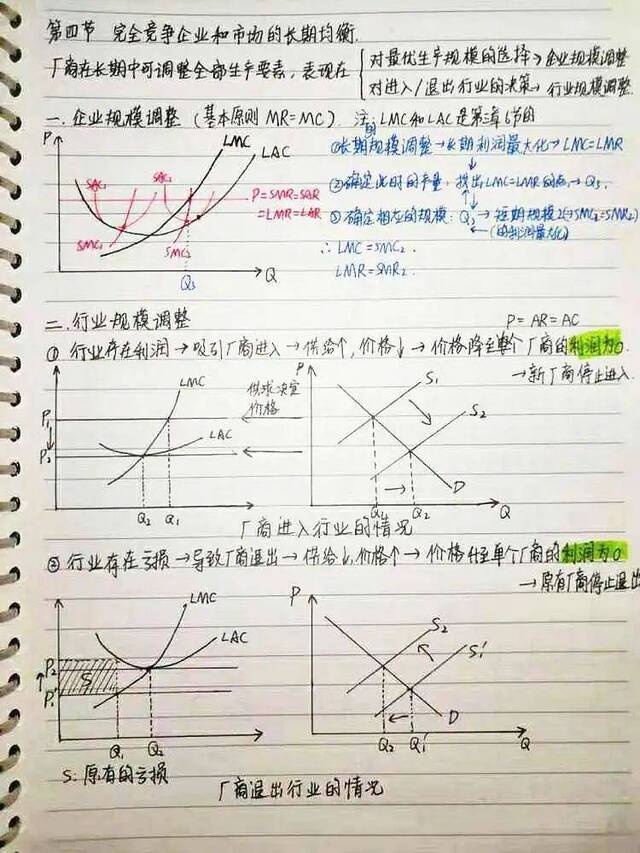 第四节 完全竞争企业和市场的长期均衡.
厂商在长期中可调整全部生产要素, 表现在
对最优生产规模的选择→企业规模调整
对进入/退出行业的决策→行业规模调整
一. 企业规模调整 (基本原则 MR=MC). 注: LMC和LAC是第五章6节的
P
LMC
LAC
SAC₁
SAC₂
P=SMR=SAR
=LMR=LAR
SMC₁
SMC₂
Q₃
Q
①长期规模调整→长期利润最大化→LMC=LMR
②确定此时的产量, 找出LMC=LMR的点,→Q₃.
③确定相应的规模: Q₃→短期规模2(→SMC₂=SMR₂)
(的利润最大化)
∴ LMC=SMC₂.
LMR=SMR₂.
二. 行业规模调整
P=AR=AC
① 行业存在利润→吸引厂商进入→供给↑, 价格↓→价格降至单个厂商的利润为0.
→新厂商停止进入.
LMC
LAC
P₁
P₂
Q₂
Q₁
供求决定
价格
P
S₁
S₂
D
Q₁
Q₂
Q
厂商进入行业的情况
② 行业存在亏损→导致厂商退出→供给↓, 价格↑→价格升至单个厂商的利润为0
→原有厂商停止退出
LMC
LAC
P₂
S
P₁'
Q₁
Q₂
P
S₂
S₁'
D
Q₂
Q₁'
Q
S: 原有的亏损
厂商退出行业的情况